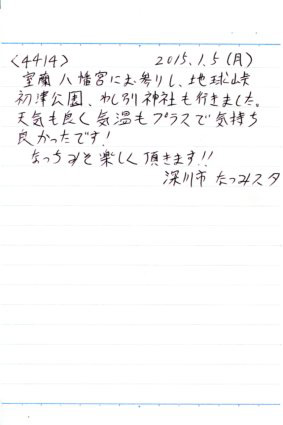 <4414> 2015.1.5(月)
室蘭八幡宮にお参りし、地球岬
初津公園、わし別神社も行きました。
天気も良く気温もプラスで気持ち
良かったです!
なっちみそ楽しく頂きます!!
深川市 なつみスタ